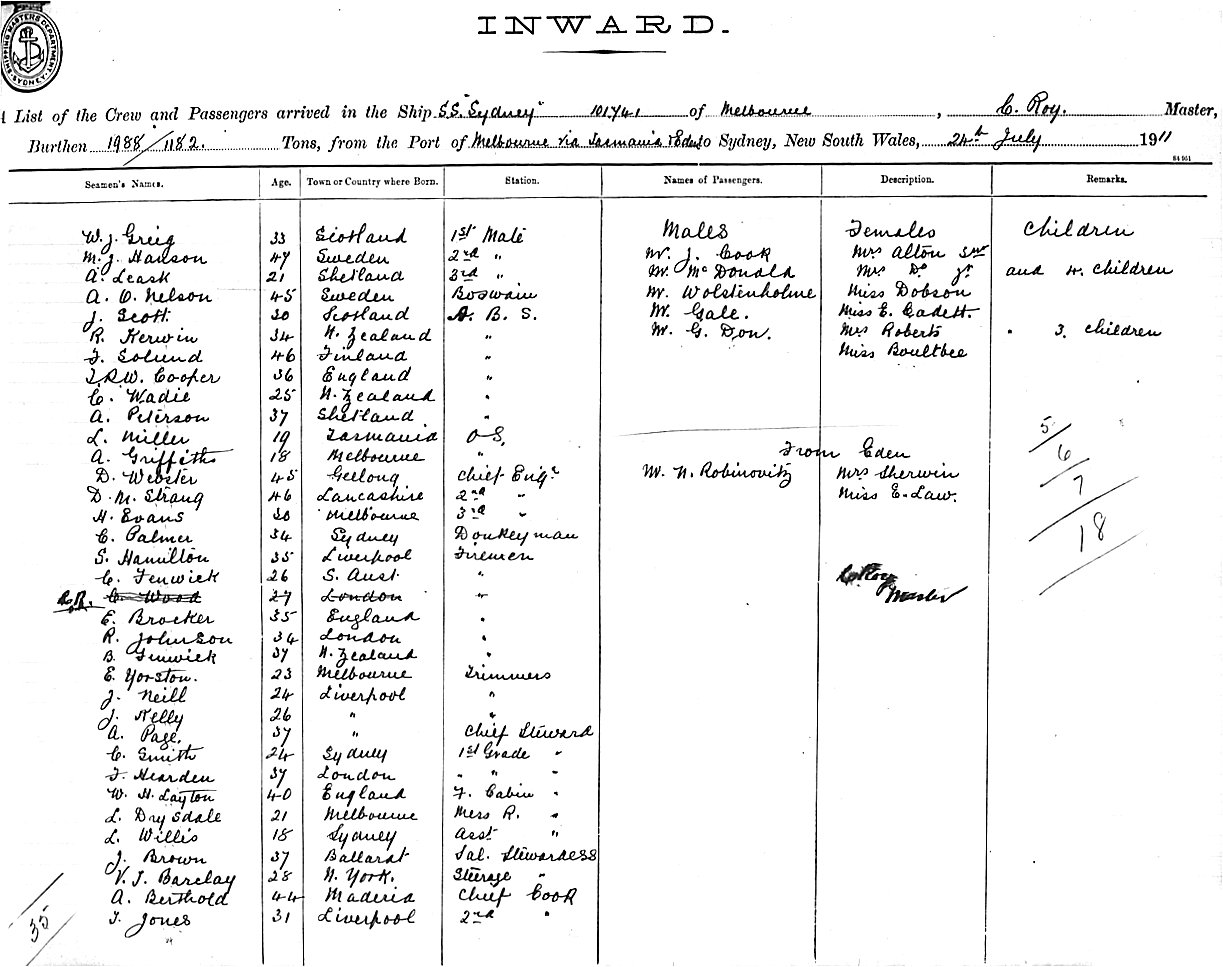 SHIPPING MASTERS DEPARTMENT SYDNEY
INWARD.
A List of the Crew and Passengers arrived in the Ship S.S. "Sydney" 101741 of Melbourne, C. Roy. Master,
Burthen 1988/1182. Tons, from the Port of Melbourne via Tasmania & Eden to Sydney, New South Wales, 24th July 1911
Seamen's Names. Age. Town or Country where Born. Station. Names of Passengers. Description. Remarks.
W. J. Greig 33 Scotland 1st Mate Males Females Children
M. J. Hanson 47 Sweden 2nd " Mr. J. Cook Mrs Alton Snr
A. Leask 21 Shetland 3rd " Mr. McDonald Mrs Do Jr and 4 children
A. O. Nelson 45 Sweden Boswain Mr. Wolstenholme Miss Dobson
J. Scott 30 Scotland A. B. S. Mr. Gale. Miss E. Cadett.
R. Kerwin 34 N. Zealand " Mr. G. Don. Mrs Roberts " 3 children
F. Solund 46 Finland " Miss Boultbee
T.R.W. Cooper 36 England "
C. Wadie 25 N. Zealand "
A. Peterson 37 Shetland "
L. Miller 19 Tasmania O.S. 5
A. Griffiths 18 Melbourne " From Eden 6
D. Webster 45 Geelong Chief Engr Mr. N. Robinovitz Mrs Sherwin 7
D. M. Strang 46 Lancashire 2nd " Miss E. Law.
H. Evans 30 Melbourne 3rd " 18
C. Palmer 34 Sydney Donkeyman
S. Hamilton 35 Liverpool Firemen
C. Fenwick 26 S. Aust " C. Roy
C.R. C. Wood 27 London " Master
E. Brocker 35 England "
R. Johnson 34 London "
B. Fenwick 37 N. Zealand "
E. Yorston. 23 Melbourne Trimmers
J. Neill 24 Liverpool "
J. Kelly 26 " "
A. Page. 37 " Chief Steward
C. Smith 24 Sydney 1st Grade "
F. Hearden 37 London " " "
W. H. Layton 40 England F. Cabin "
L. Drysdale 21 Melbourne Mess R. "
L. Willis 18 Sydney Asst "
J. Brown 37 Ballarat Sal. Stewardess
V. J. Barclay 28 N. York. Steerage "
A. Berthold 44 Maderia Chief Cook
T. Jones 31 Liverpool 2nd "
35